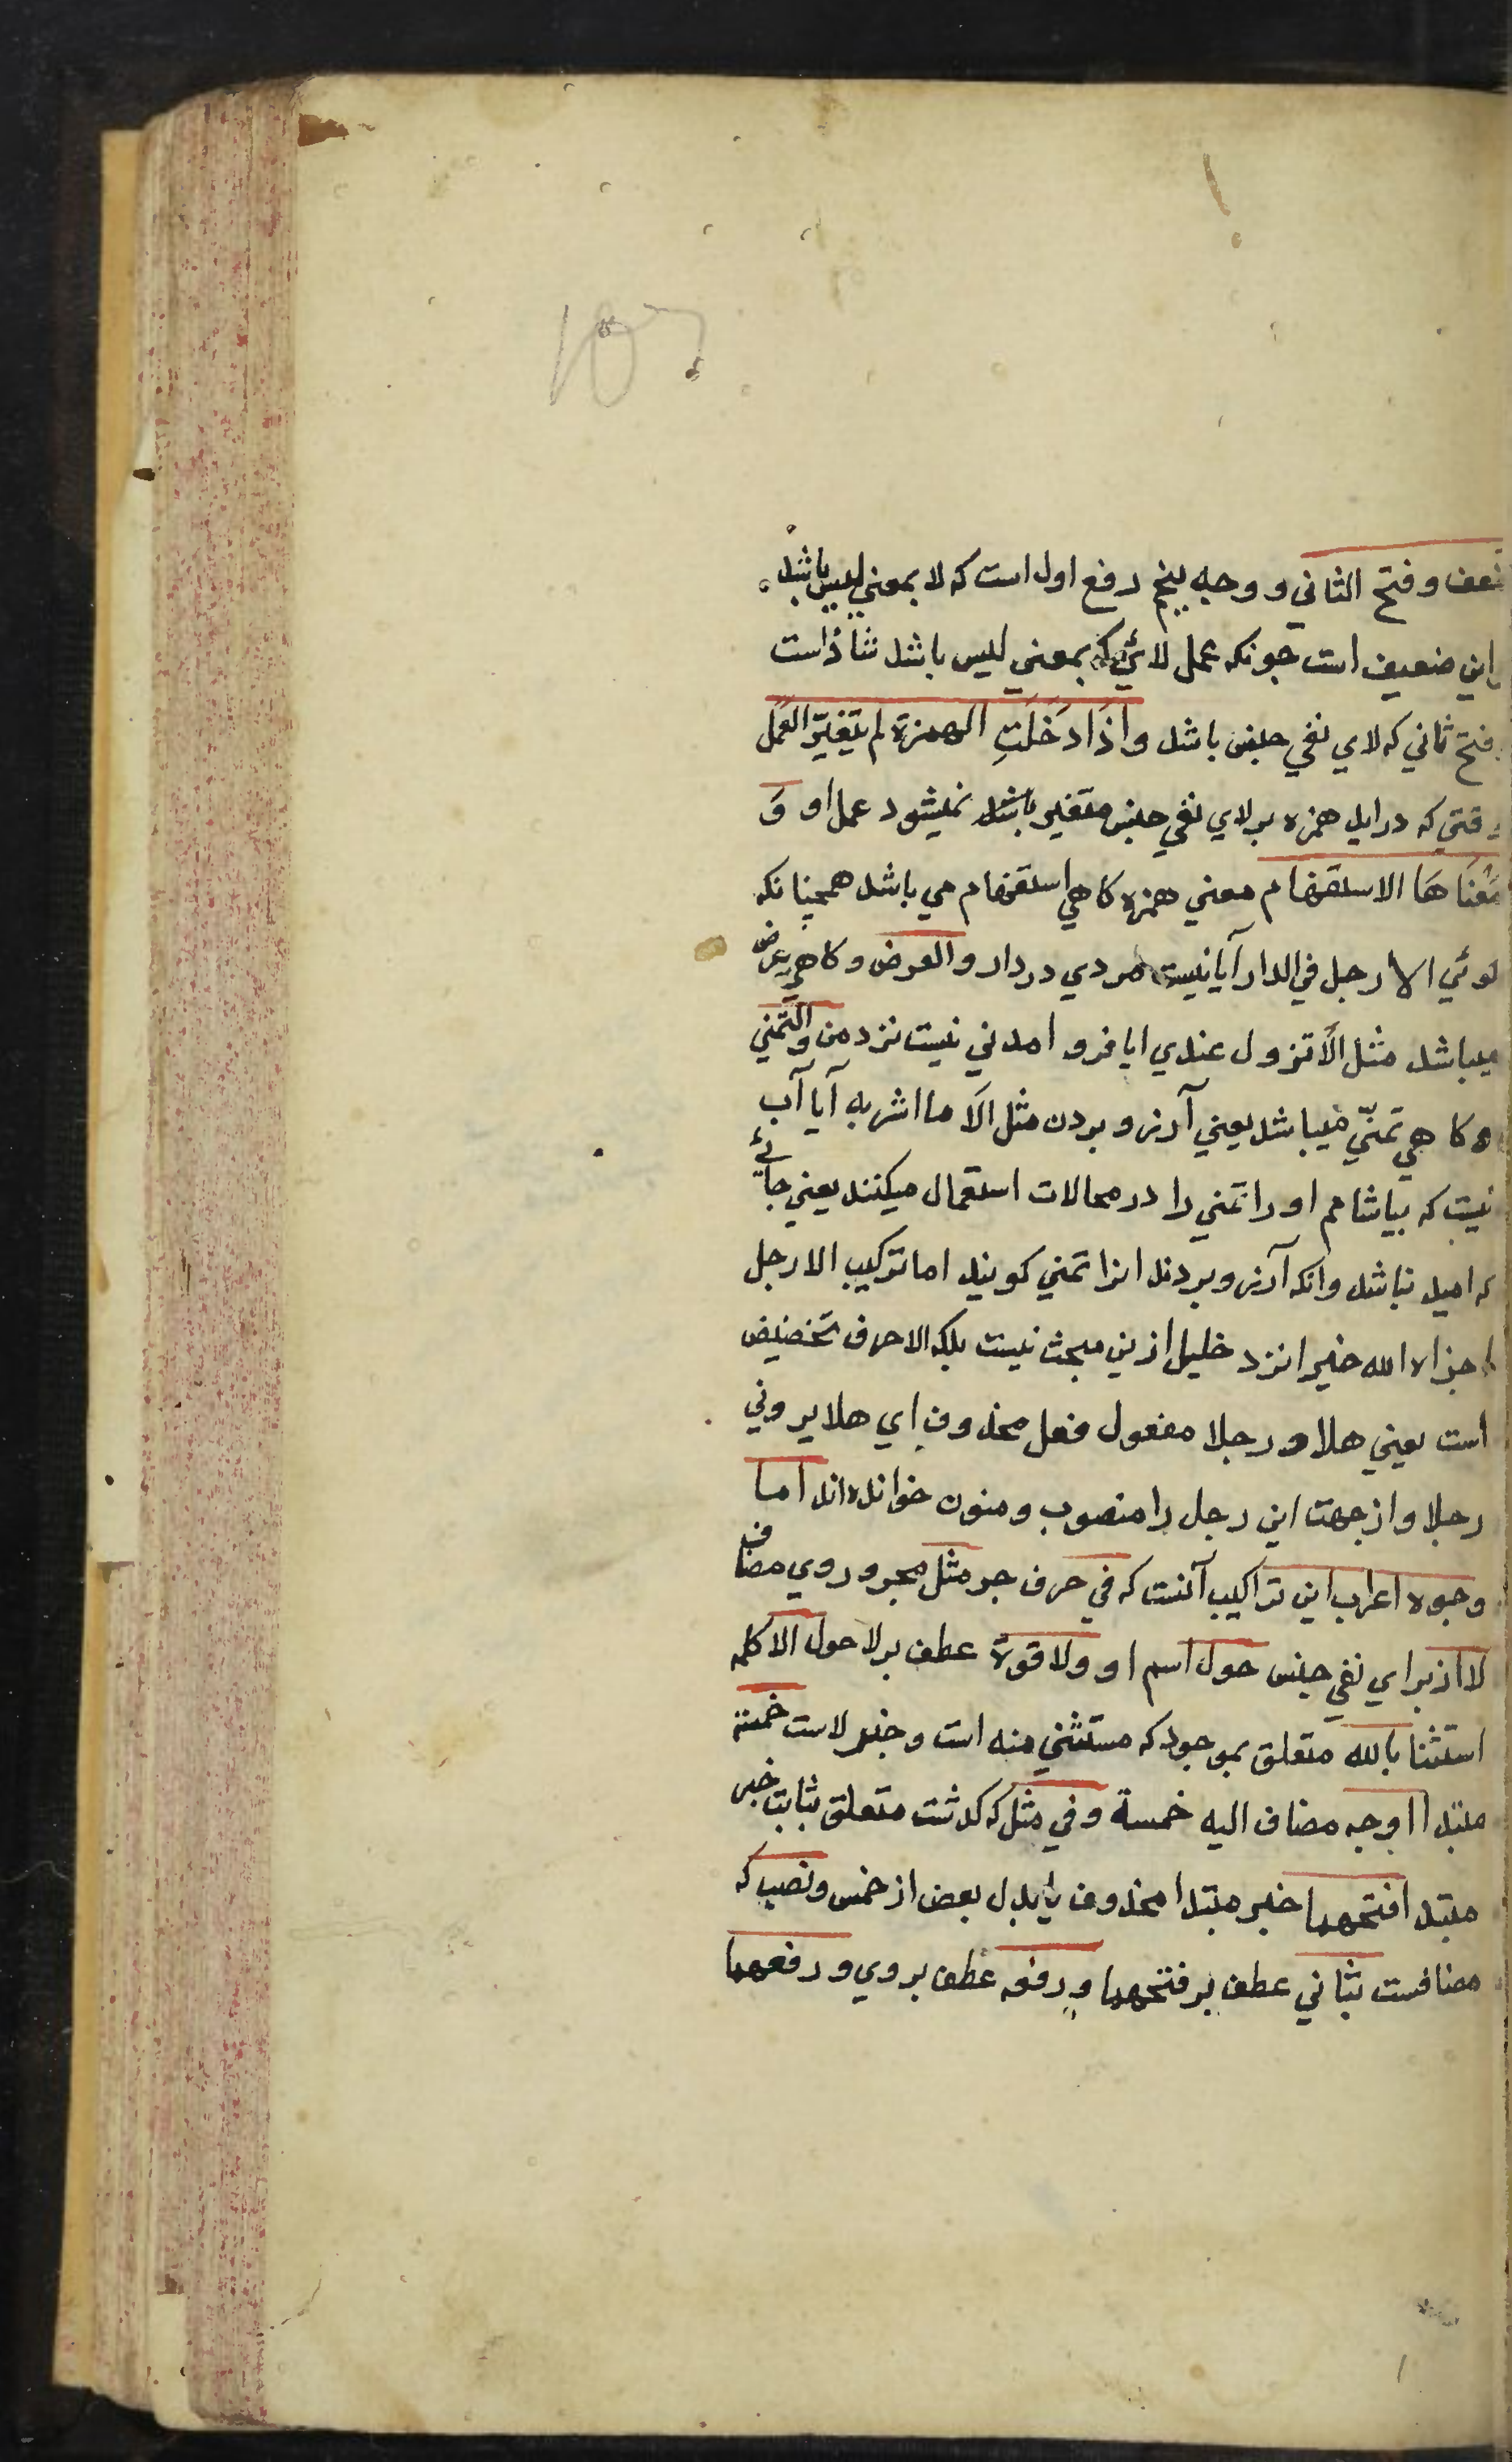 ضعف وفتح الثاني و وجه پنجم رفع اول است که لا بمعني ليس باشد
و اين ضعيف است جونکه عمل لائي که بمعني ليس باشد شاذ است
و فتح ثاني که لاي نفي جنس باشد واِذَا دَخَلَتِ الهمزة لم يتغيّر العَمَل
وقتي که درايد همزه بر لاي نفي جنس متغير باشد نميشود عمل او وَ
مَعْنَاهَا الاستفهام معني همزه کاهي استفهام مي باشد همچنانکه
کوئي الا رجل في الدار آيا نيست مردي در دار والعرض و کاهي عرض
ميباشد مثل اَلَا تزول عندي ايا فرو امدني نيست نزد من والتمني
و کاهي تمنّي ميباشد يعني آرزو بردن مثل اَلَا ما اشربه آيا آب
نيست که بياشامم او را تمني را در محالات استعمال ميکنند يعني جائي
که اميد نباشد وانکه آرزو بردند انرا تمني کويند اما ترکيب الا رجل
جزاه الله خيرا نزد خليل ازين مبحث نيست بلکه الا حرف تخصيص
است يعني هلا و رجلا مفعول فعل محذوف اي هلا يروني
رجلا و از جهت اين رجل را منصوب و منون خوانده‌اند اما
وجوه اعراب اين تراکيب آنست که في حرف جر مثل مجرور وي مضاف
لا از براي نفي جنس حول اسم او ولا قوة عطف بر لا حول الا کلمه
استثنا بالله متعلق بموجود که مستثني منه است و خبر لاست خمسة
مبتدا اوجه مضاف اليه خمسة وفي مثل که کذشت متعلق بثابت خبر
مبتدا فتحهما خبر مبتدا محذوف يا بدل بعض از خمس ونصب که
مضافست بثاني عطف بر فتحهما ورفعه عطف بر وي ورفعهما